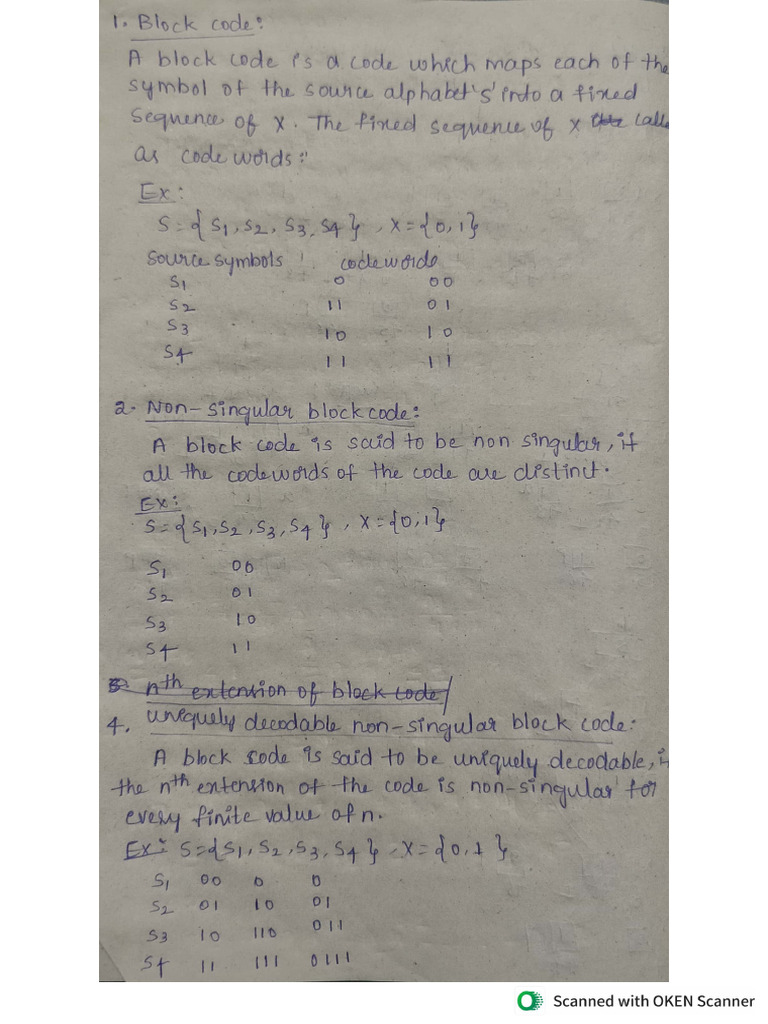 1. Block code:
A block code is a code which maps each of the
symbol of the source alphabet 's' into a fixed
sequence of X. The fixed sequence of X call
as code words:
Ex:
S={S1,S2,S3,S4}, X={0,1}
Source symbols codewords
S1 0 00
S2 11 01
S3 10 10
S4 11 11
2. Non-singular block code:
A block code is said to be non singular, if
all the codewords of the code are distinct.
Ex:
S={S1,S2,S3,S4}, X={0,1}
S1 00
S2 01
S3 10
S4 11
nth extension of block code
4. uniquely decodable non-singular block code:
A block code is said to be uniquely decodable, i
the nth extension of the code is non-singular for
every finite value of n.
Ex: S={S1,S2,S3,S4}, X={0,1}
S1 00 0 0
S2 01 10 01
S3 10 110 011
S4 11 111 0111
Scanned with OKEN Scanner